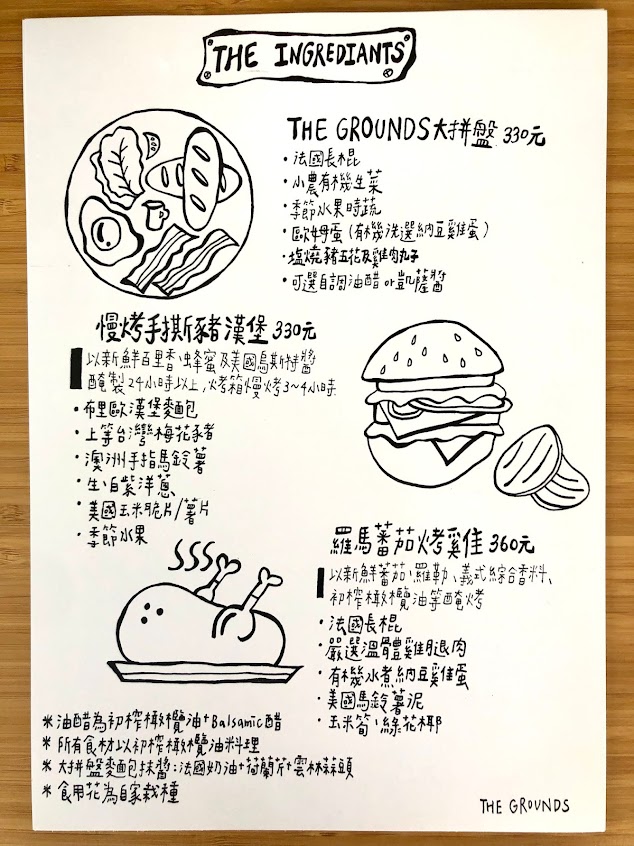 THE INGREDIANTS
THE GROUNDS大拼盤 330元
·法國長棍
·小農有機生菜
·季節水果時蔬
·歐姆蛋(有機洗選納豆雞蛋)
·塩燒豬五花及雞肉丸子
·可選自調油醋or凱薩醬
慢烤手撕豬漢堡 330元
以新鮮百里香、蜂蜜及美國烏斯特醬
醃製24小時以上,烤箱慢烤3~4小時
·布里歐漢堡麵包
·上等台灣梅花豬
·澳洲手指馬鈴薯
·生、白紫洋蔥
·美國玉米脆片/薯片
·季節水果
羅馬蕃茄烤雞 360元
以新鮮蕃茄、羅勒、義式綜合香料、
初榨橄欖油等醃烤
·法國長棍
·嚴選溫體雞腿肉
·有機水煮納豆雞蛋
·美國馬鈴薯泥
·玉米筍、綠花椰
*油醋為初榨橄欖油+Balsamic醋
*所有食材以初榨橄欖油料理
*大拼盤麵包抹醬:法國奶油+荷蘭芹+雲林蒜頭
*食用花為自家栽種
THE GROUNDS